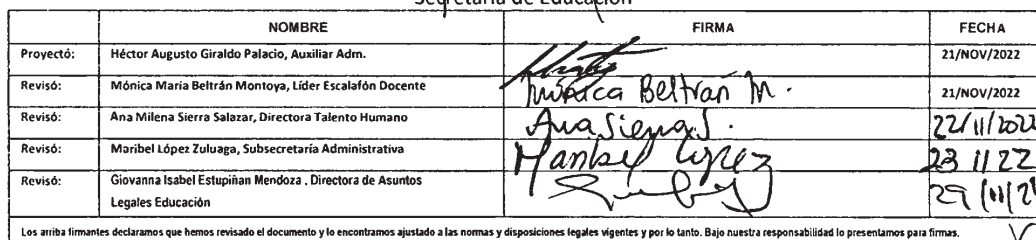 Secretaría de Educación
NOMBRE FIRMA FECHA
Proyectó: Héctor Augusto Giraldo Palacio, Auxiliar Adm. 21/NOV/2022
Revisó: Mónica María Beltrán Montoya, Líder Escalafón Docente Mónica Beltrán M. 21/NOV/2022
Revisó: Ana Milena Sierra Salazar, Directora Talento Humano Ana Sierra S. 22/11/2022
Revisó: Maribel López Zuluaga, Subsecretaría Administrativa Maribel López 23 11 22
Revisó: Giovanna Isabel Estupiñan Mendoza , Directora de Asuntos
Legales Educación
Los arriba firmantes declaramos que hemos revisado el documento y lo encontramos ajustado a las normas y disposiciones legales vigentes y por lo tanto. Bajo nuestra responsabilidad lo presentamos para firmas.